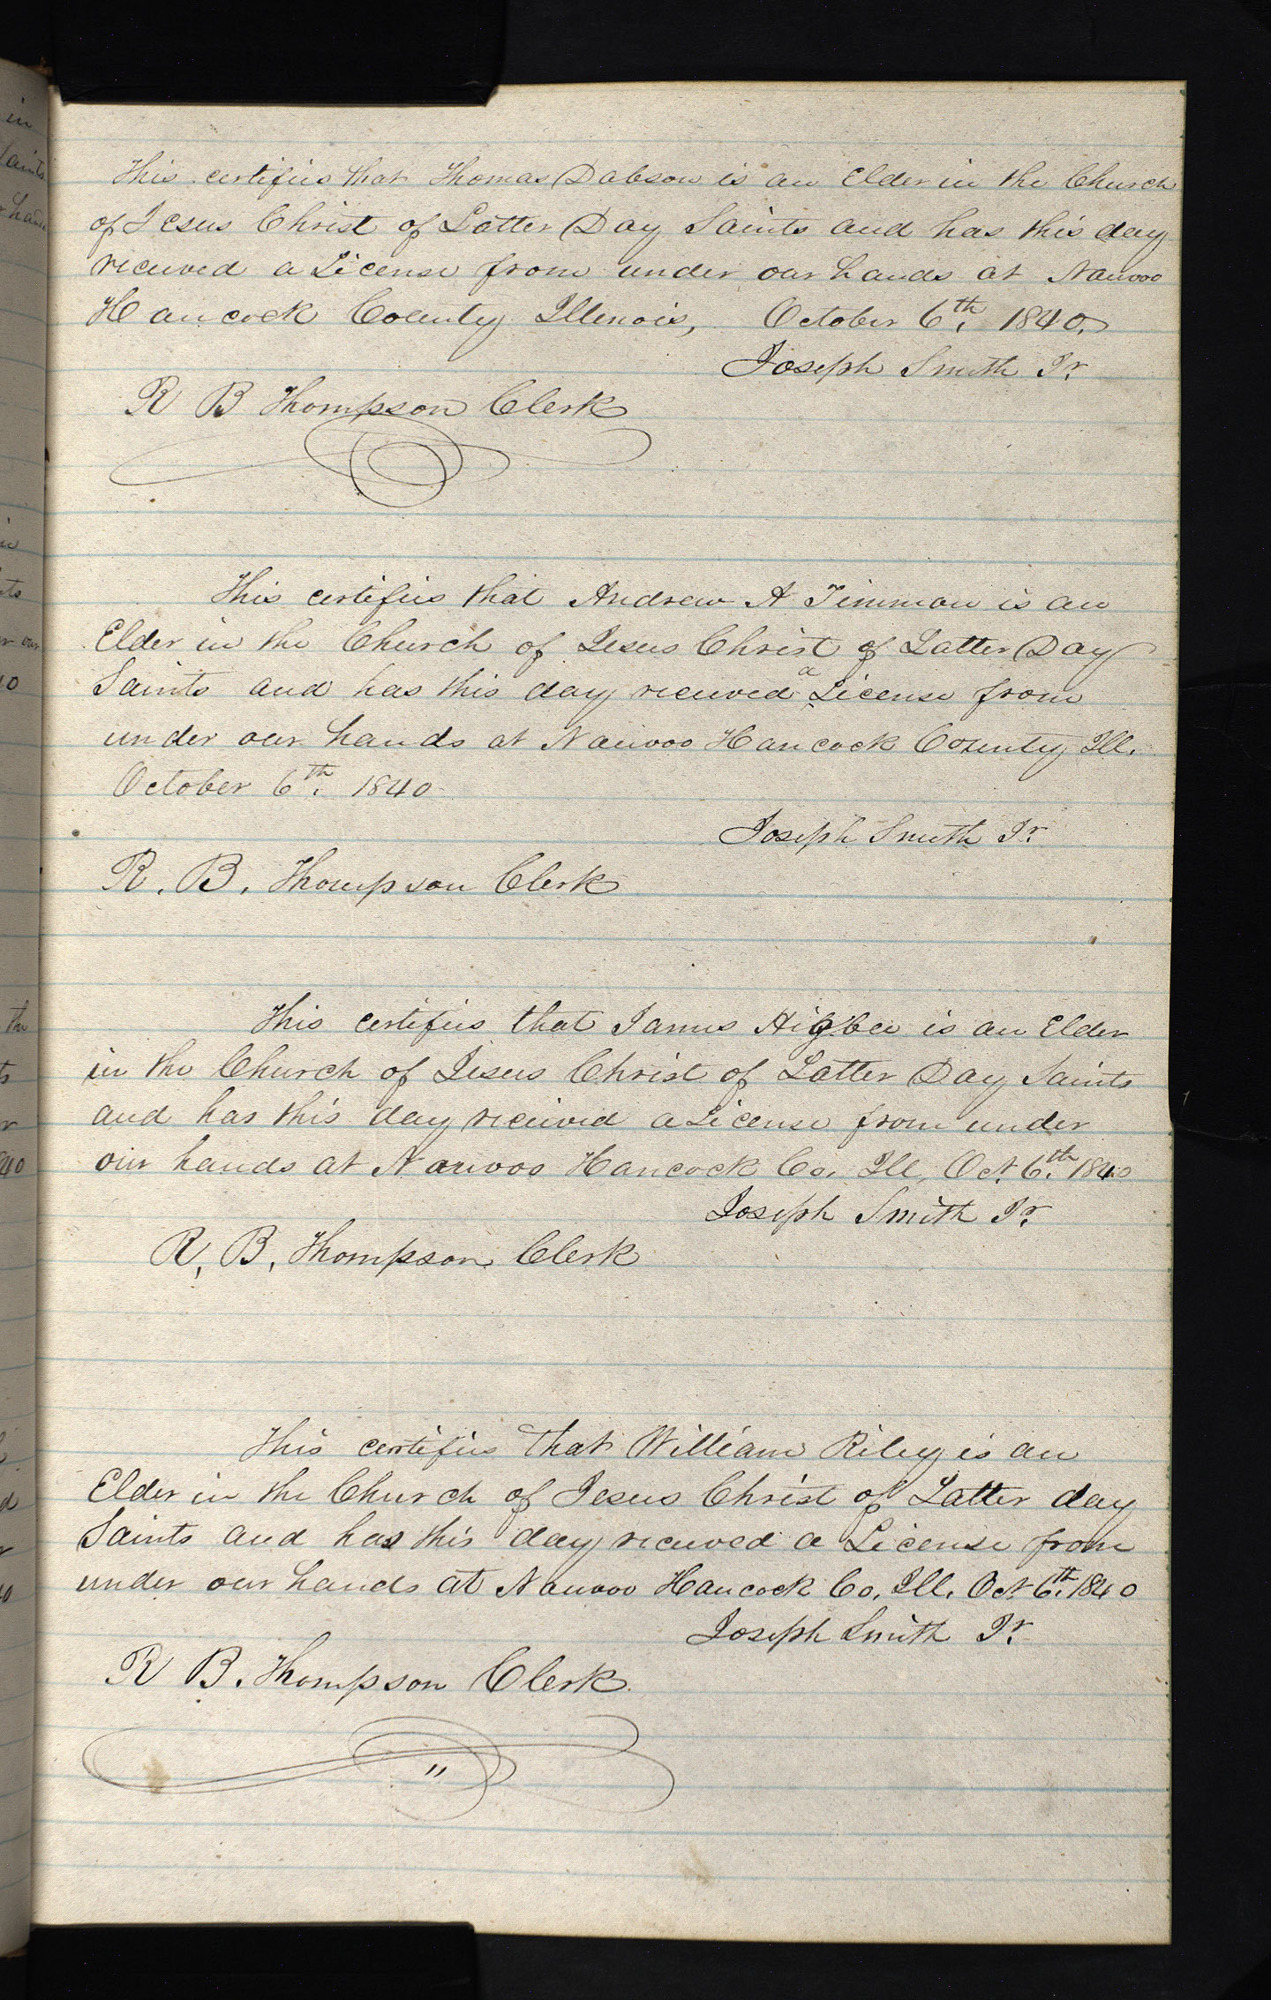 This certifies that Thomas Dobson is an Elder in the Church
of Jesus Christ of Latter Day Saints and has this day
received a License from under our hands at Nauvoo
Hancock County Illinois, October 6th. 1840.
Joseph Smith Jr.
R B Thompson Clerk
This certifies that Andrew A Timmon is an
Elder in the Church of Jesus Christ of Latter Day
Saints and has this day received a License from
under our hands at Nauvoo Hancock County Ill.
October 6th. 1840
Joseph Smith Jr.
R. B. Thompson Clerk
This certifies that James Higbee is an Elder
in the Church of Jesus Christ of Latter Day Saints
and has this day received a License from under
our hands at Nauvoo Hancock Co. Ill, Oct. 6th. 1840
Joseph Smith Jr.
R. B. Thompson Clerk
This certifies that William Riley is an
Elder in the Church of Jesus Christ of Latter day
Saints and has this day received a License from
under our hands at Nauvoo Hancock Co. Ill. Oct 6th. 1840
Joseph Smith Jr.
R B. Thompson Clerk